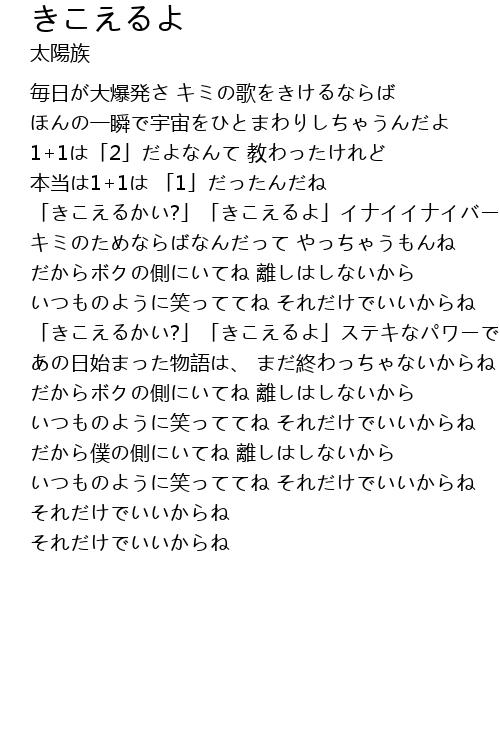 きこえるよ
太陽族
毎日が大爆発さ キミの歌をきけるならば
ほんの一瞬で宇宙をひとまわりしちゃうんだよ
1+1は「2」だよなんて 教わったけれど
本当は1+1は 「1」だったんだね
「きこえるかい?」「きこえるよ」イナイイナイバー
キミのためならばなんだって やっちゃうもんね
だからボクの側にいてね 離しはしないから
いつものように笑っててね それだけでいいからね
「きこえるかい?」「きこえるよ」ステキなパワーで
あの日始まった物語は、 まだ終わっちゃないからね
だからボクの側にいてね 離しはしないから
いつものように笑っててね それだけでいいからね
だから僕の側にいてね 離しはしないから
いつものように笑っててね それだけでいいからね
それだけでいいからね
それだけでいいからね